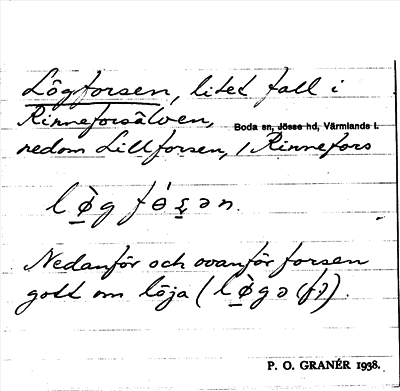 Lögforsen, litet fall i
Rinneforsälven,
Boda sn, Jösse hd, Värmlands l.
nedom Lillforsen, / Rinnefors
Nedanför och ovanför forsen
gott om löja
P. O. GRANÉR 1938.